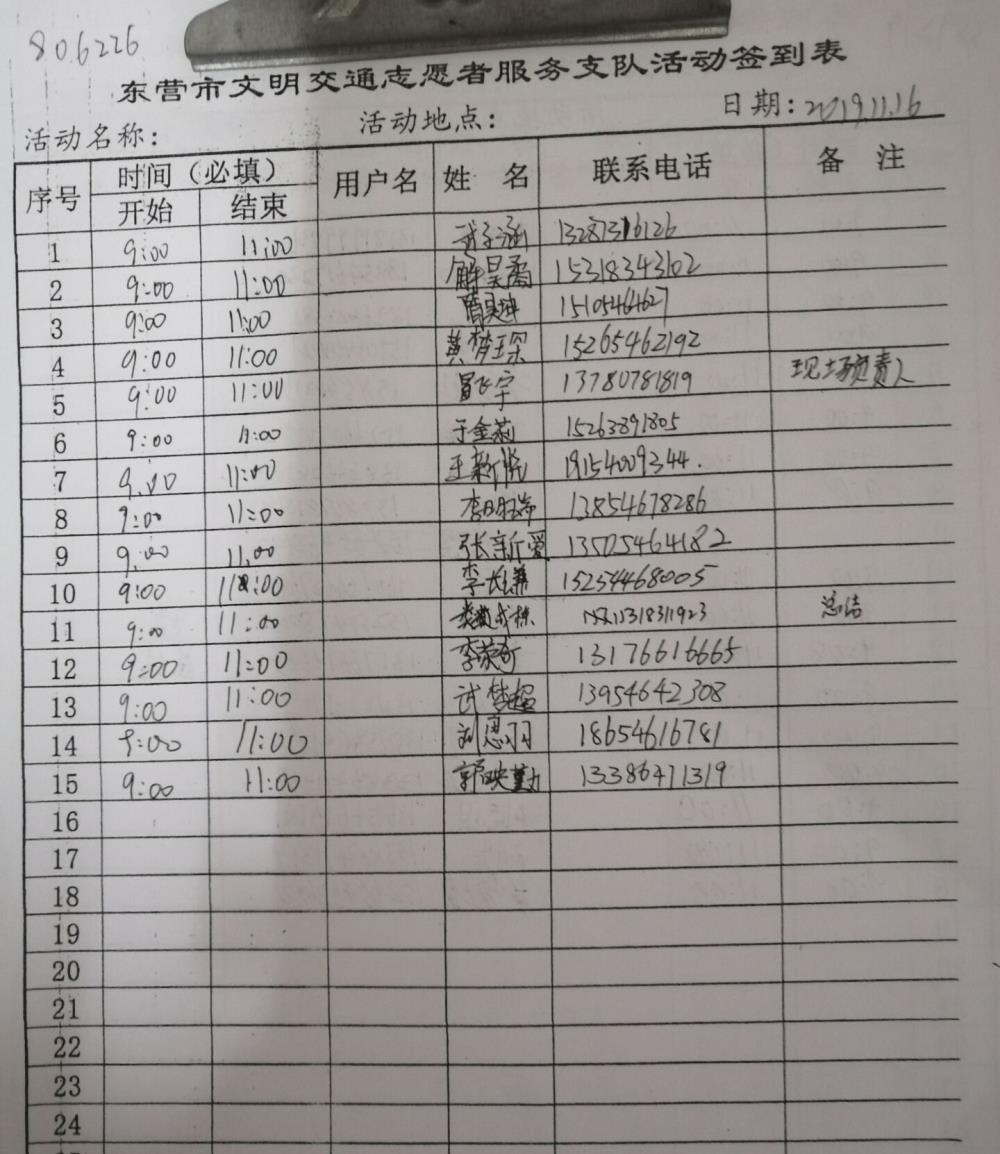 806226
东营市文明交通志愿者服务支队活动签到表
活动名称： 活动地点： 日期：2019.11.16
序号 时间（必填） 用户名 姓 名 联系电话 备 注
开始 结束
1 9:00 11:00 武子涵 13287316126
2 9:00 11:00 解昊儒 15318343102
3 9:00 11:00 15105464627
4 9:00 11:00 黄梦琛 15265462192
5 9:00 11:00 冒飞宇 13780781819 现场负责人
6 9:00 11:00 于金莉 15263891805
7 9:00 11:00 王新悦 19154009344.
8 9:00 11:00 13854678286
9 9:00 11:00 张新爱 13505464182
10 9:00 11:00 李长 15254468005
11 9:00 11:00 成栋 15318311923 总结
12 9:00 11:00 李荣奇 13176616665
13 9:00 11:00 试梦超 13954642308
14 9:00 11:00 刘恩羽 18654616781
15 9:00 11:00 郭映勤 13386471319
16
17
18
19
20
21
22
23
24